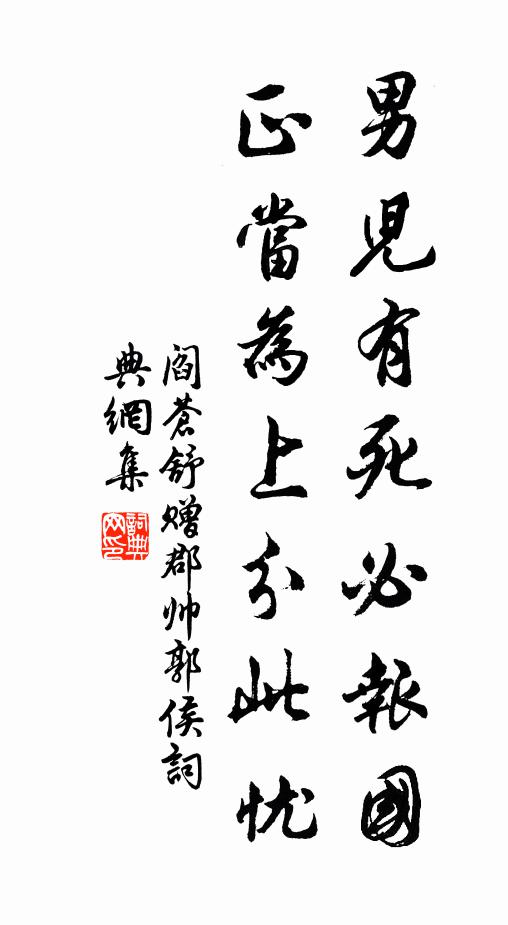 男兒有死必報國
正當為上分此忧
閻蒼舒赠郡帅郭侯詞
典網集
詞典網印